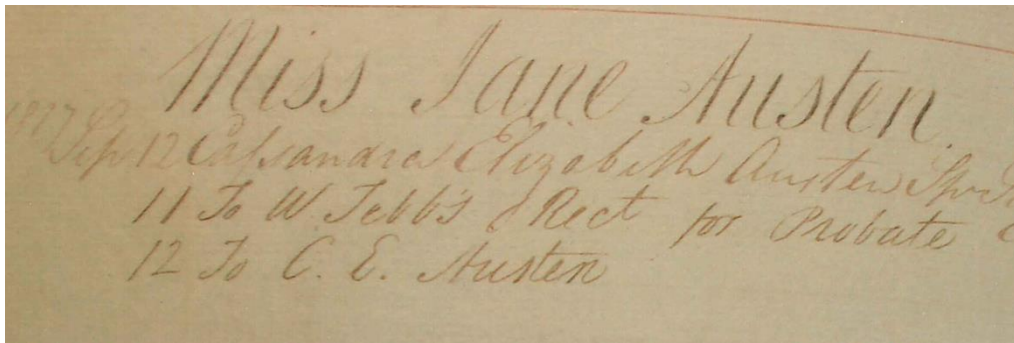 Miss Jane Austen.
Sep 12 Caſsandra Elizabeth Austen
11 To W. Tebb's Rect for Probate
12 To C. E. Austen